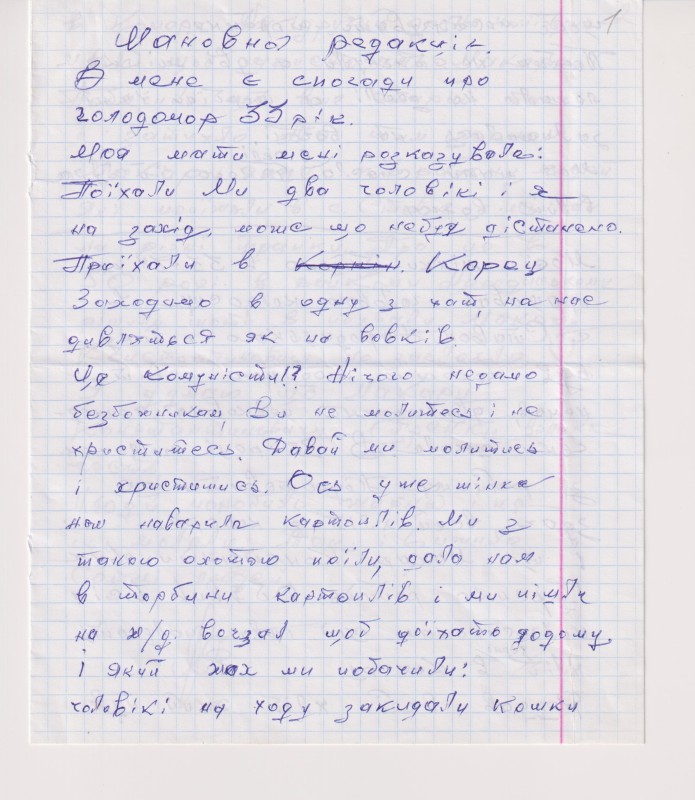 1
Шановної редакції.
В мене є спогади про
голодомор 33 рік.
Моя мати мені розказувала:
Поїхали ми два чоловікі і я
на захід, може що небудь дістанемо.
Приїхали в Корець
Заходимо в одну з хат, на нас
дивляться як на вовків.
Це комуністи!? Нічого недамо
безбожникам, Ви не молитесь і не
христитесь. Давай ми молитись
і христитись. Ось уже жінка
нам наварила картоплів. Ми з
такою охотою поїли, дала нам
в торбини картоплів і ми пішли
на ж/д. вокзал щоб доїхати додому,
і який жах ми побачили:
чоловікі на ходу закидали кошки